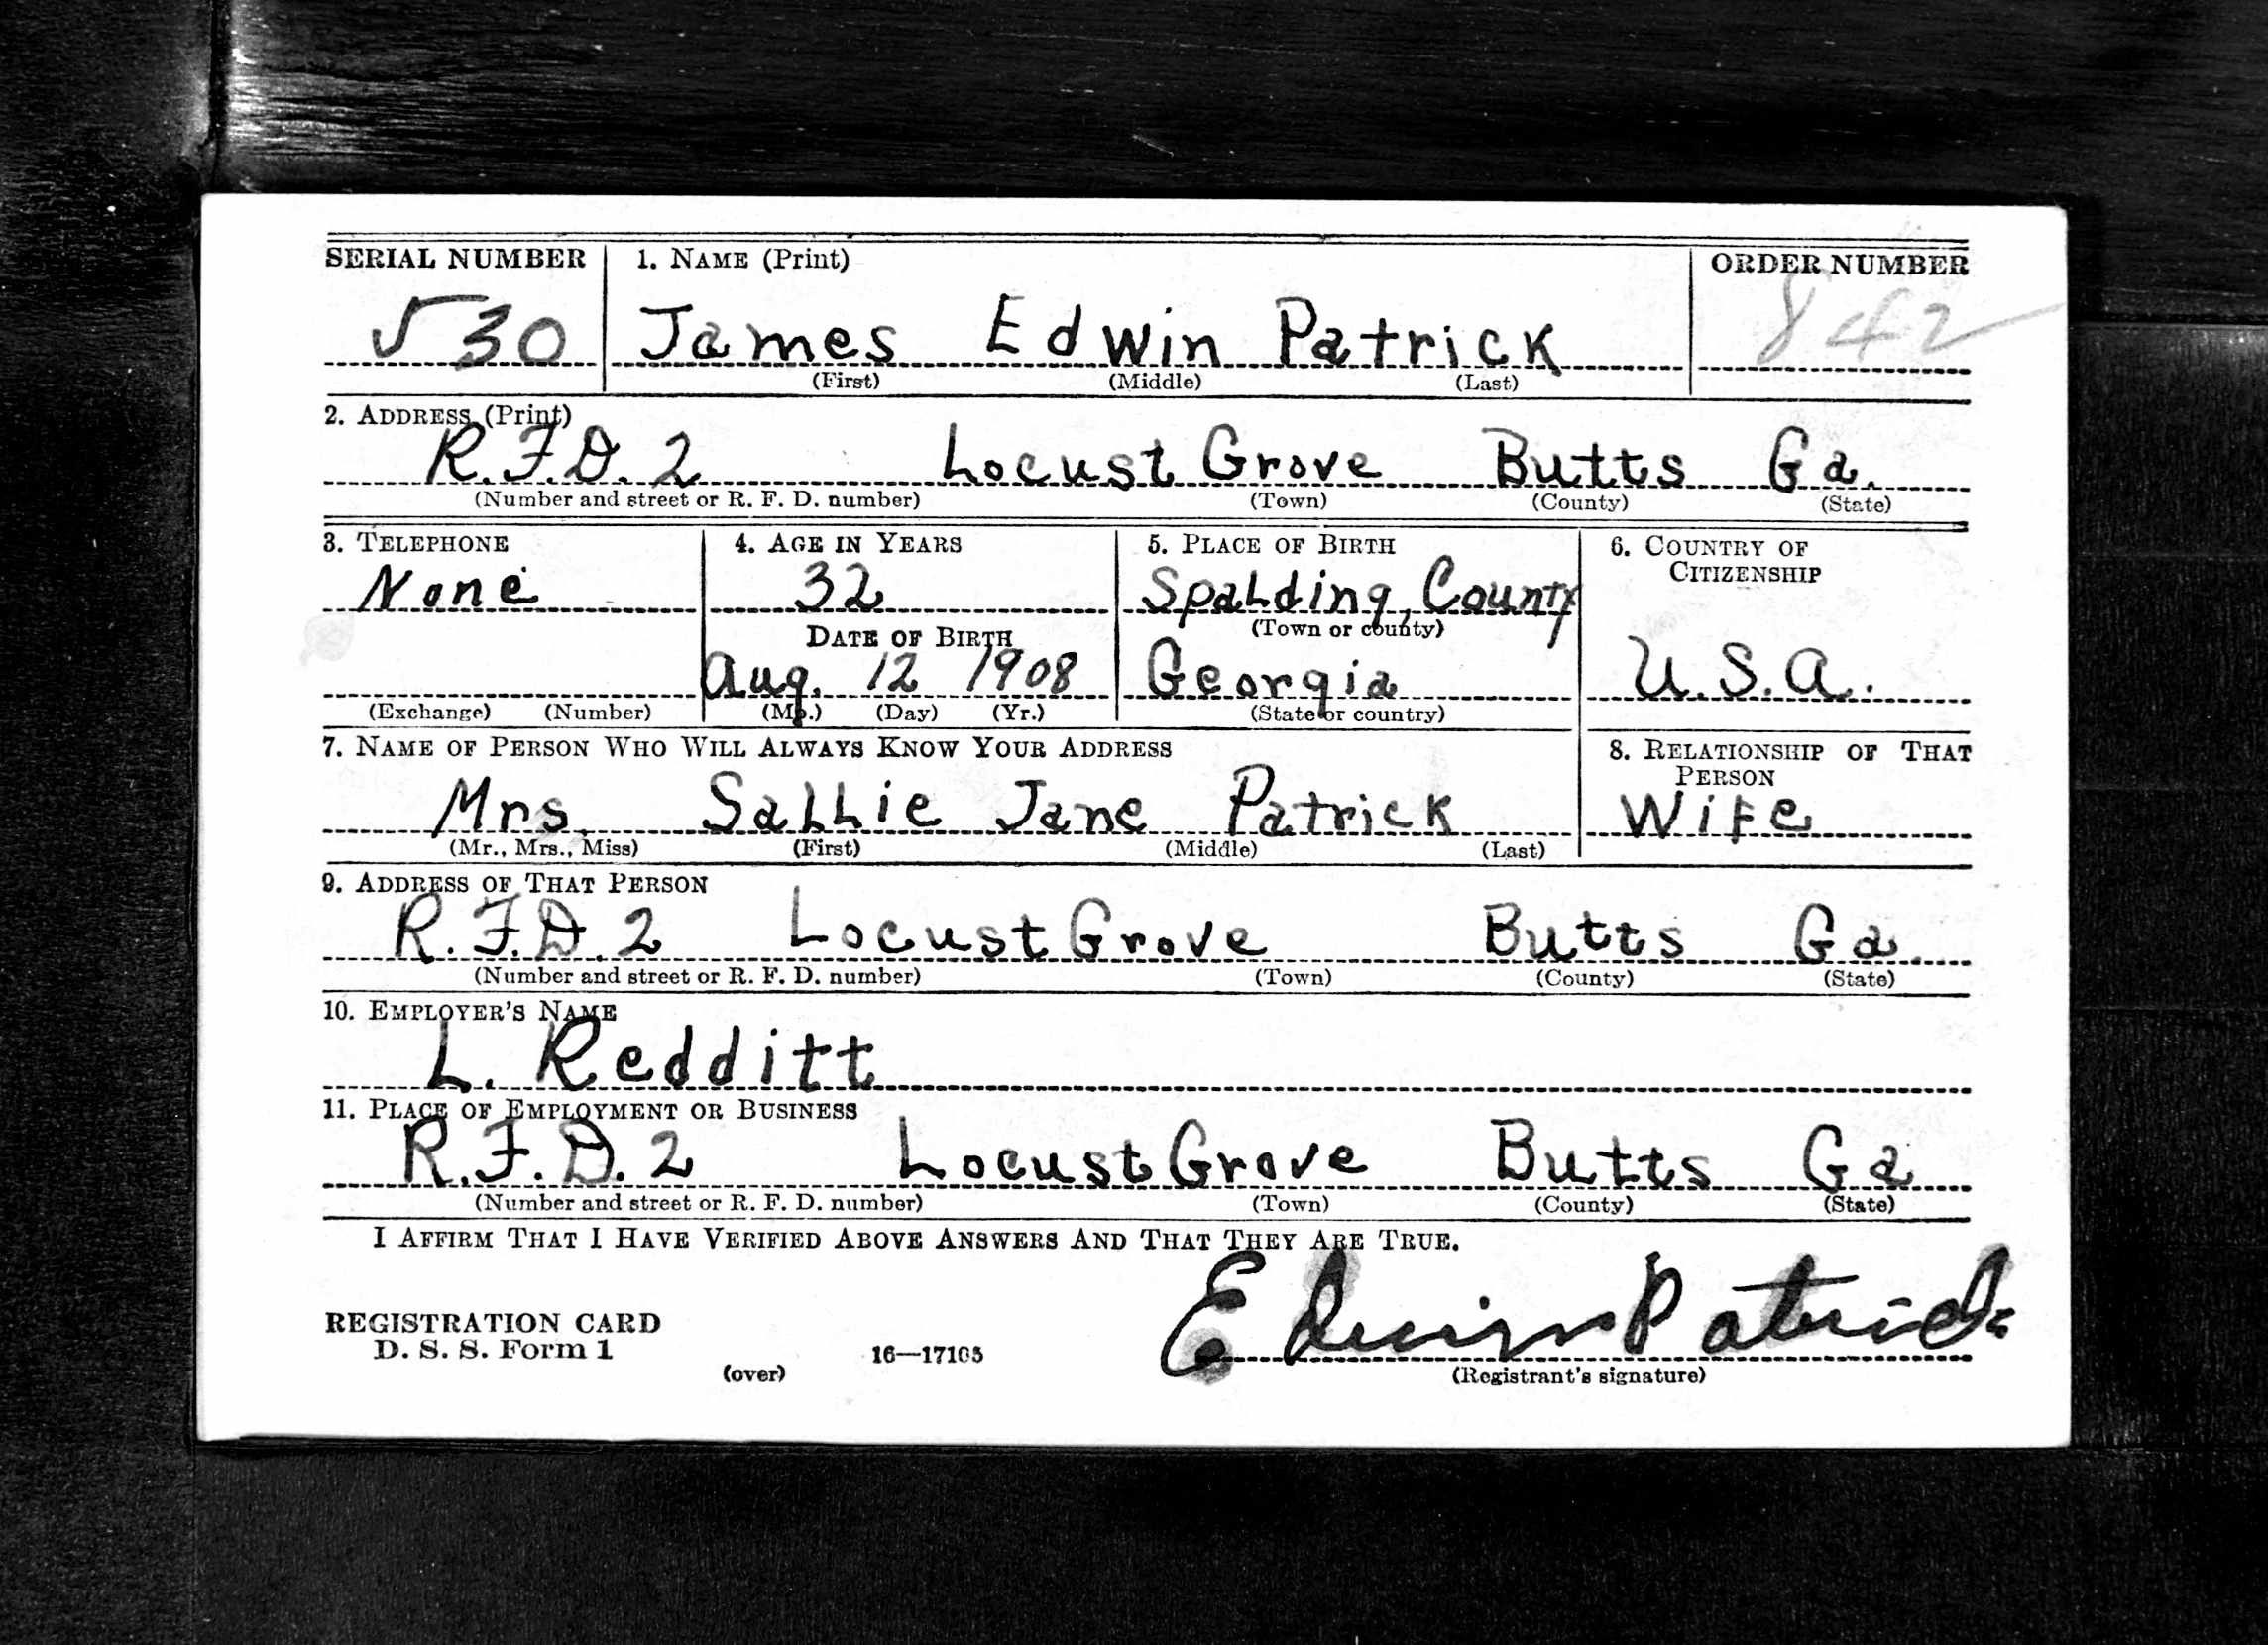 SERIAL NUMBER 1. NAME (Print) ORDER NUMBER
√ 30 James Edwin Patrick 842
(First) (Middle) (Last)
2. ADDRESS (Print)
R.F.D. 2 Locust Grove Butts Ga.
(Number and street or R. F. D. number) (Town) (County) (State)
3. TELEPHONE 4. AGE IN YEARS 5. PLACE OF BIRTH 6. COUNTRY OF
CITIZENSHIP
None 32 Spalding, County
DATE OF BIRTH (Town or county)
Aug. 12 1908 Georgia U.S.A.
(Exchange) (Number) (Mo.) (Day) (Yr.) (State or country)
7. NAME OF PERSON WHO WILL ALWAYS KNOW YOUR ADDRESS 8. RELATIONSHIP OF THAT
PERSON
Mrs. Sallie Jane Patrick Wife
(Mr., Mrs., Miss) (First) (Middle) (Last)
9. ADDRESS OF THAT PERSON
R.F.D. 2 Locust Grove Butts Ga.
(Number and street or R. F. D. number) (Town) (County) (State)
10. EMPLOYER'S NAME
L. Redditt
11. PLACE OF EMPLOYMENT OR BUSINESS
R.F.D. 2 Locust Grove Butts Ga
(Number and street or R. F. D. number) (Town) (County) (State)
I AFFIRM THAT I HAVE VERIFIED ABOVE ANSWERS AND THAT THEY ARE TRUE.
Edwin Patrick
REGISTRATION CARD
D. S. S. Form 1 16—17105
(over) (Registrant's signature)